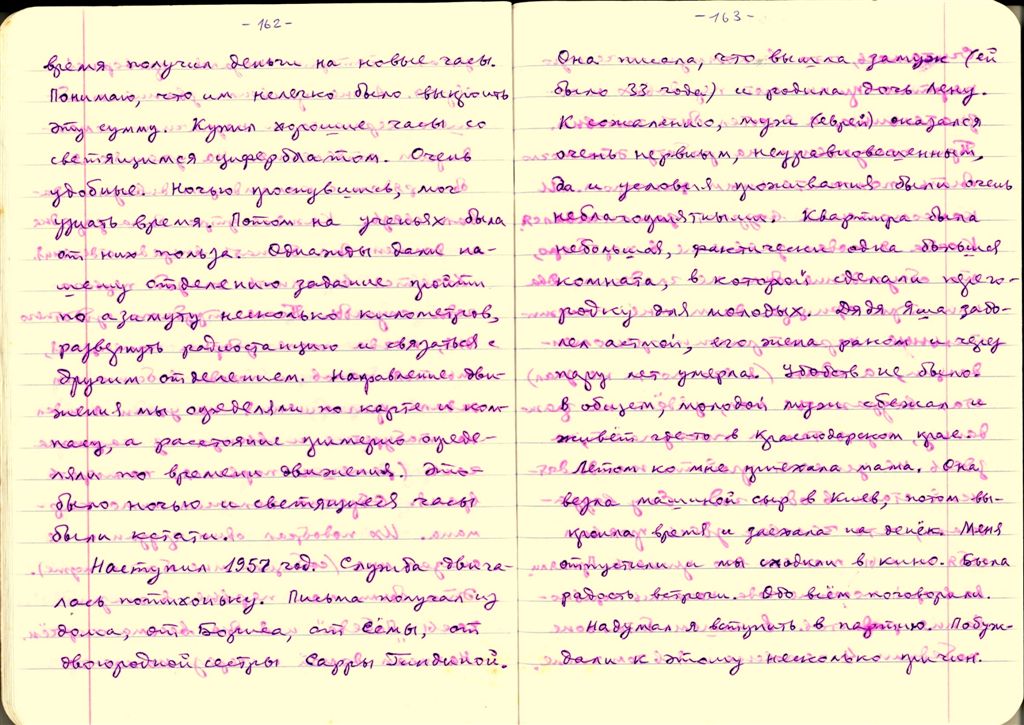 - 162 -
время получил деньги на новые часы.
Понимаю, что им нелегко было выкроить
эту сумму. Купил хорошие часы со
светящимся циферблатом. Очень
удобные. Ночью проснувшись, мог
узнать время. Потом на ученьях была
от них польза. Однажды дали на-
шему отделению задание пройти
по азимуту несколько километров,
развернуть радиостанцию и связаться с
другим отделением. Направление дви-
жения мы определяли по карте и ком-
пасу, а расстояние примерно опреде-
ляли по времени движения. Это
было ночью и светящиеся часы
были кстати.
Наступил 1957 год. Служба двига-
лась потихоньку. Письма получал из
дома, от Бориса, от Сёмы, от
двоюродной сестры Сарры Гиндиной.
- 163 -
Она писала, что вышла замуж (ей
было 33 года) и родила дочь Лену.
К сожалению, муж (еврей) оказался
очень нервным, неуравновешенным,
да и условия проживания были очень
неблагоприятными. Квартира была
небольшая, фактически одна большая
комната, в которой сделали перего-
родку для молодых. Дядя Яша забо-
лел астмой, его жена раком и через
пару лет умерла. Удобств не было.
В общем, молодой муж сбежал и
живёт где-то в Краснодарском крае.
Летом ко мне приехала мама. Она
везла машиной сыр в Киев, потом вы-
кроила время и заехала на денёк. Меня
отпустили и мы сходили в кино. Была
радость встречи. Обо всём поговорили.
Надумал я вступить в партию. Побуж-
дали к этому несколько причин.